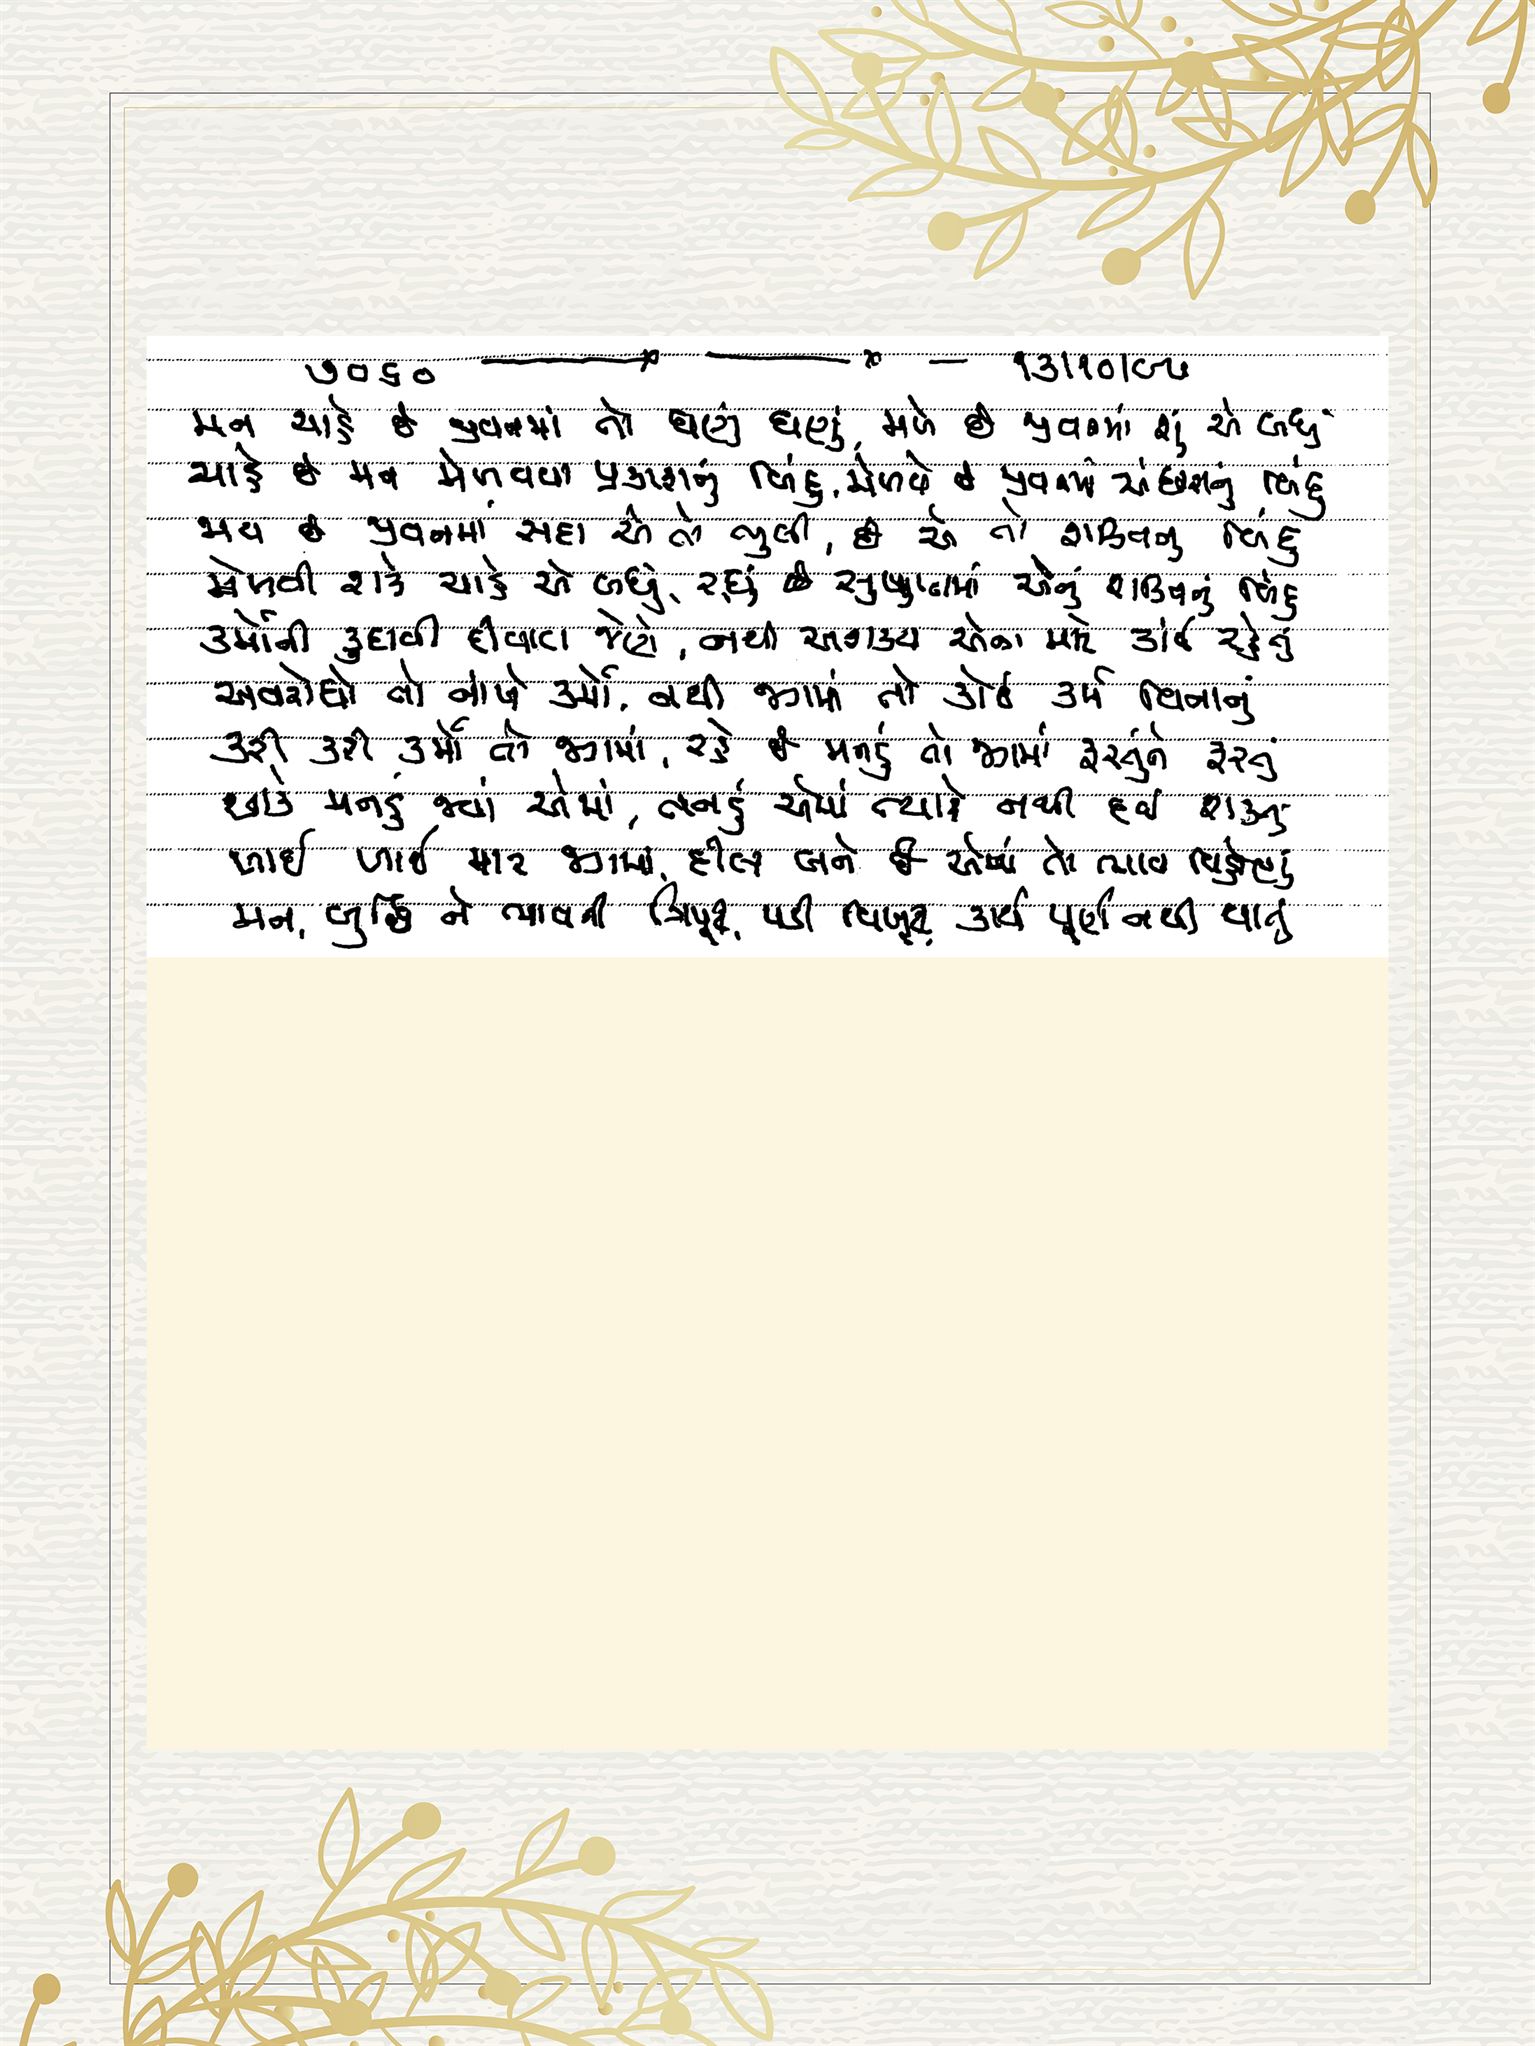 ૭૦૬૦ ——— x ——— x — ૧૩/૧૦/૯૭
મન ચાહે છે જીવનમાં તો ઘણું ઘણું, મળે છે જીવનમાં શું એ બધું
ચાહે છે મન મેળવવા પ્રકાશનું બિંદુ, મેળવે છે જીવનમાં અંધારાનું બિંદુ
જાય છે જીવનમાં સદા એ તો ભુલી, છે એ તો શક્તિનું બિંદુ
મેળવી શકે ચાહે એ બધું, રહ્યું છે સુષુપ્તમાં એનું શક્તિનું બિંદુ
કર્મોની કુદાવી દીવાલ જેણે, નથી અશક્ય એના માટે કાંઈ રહેતું
અવરોધો તો નાંખે કર્મો, નથી જગમાં તો કોઈ કર્મ વિનાનું
કરી કરી કર્મો તો જગમાં, રહે છે મનડું તો જગમાં ફરતુંને ફરતું
થાકે મનડું જ્યાં એમાં, તનડું એમાં ત્યારે નથી દઈ શકતું
ખાઈ ખાઈ માર જગમાં, દીલ બને છે એમાં તો ભાવ વિહોણું
મન, બુદ્ધિ ને ભાવની ત્રિપૂટી, પડી વિખૂટી, કાર્ય પૂર્ણ નથી થાતું